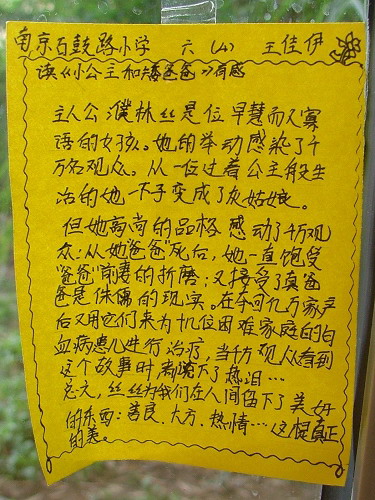 南京石鼓路小学 六（4） 王佳伊
读《小公主和矮爸爸》有感
主人公：濮林丝是位早慧而又寡
语的女孩。她的举动感染了千
万名观众。从一位过着公主般生
活的她一下子变成了灰姑娘。
但她高尚的品格感动了千万观
众：从她"爸爸"死后，她一直饱受
"爸爸"前妻的折磨；又接受了真爸
爸是侏儒的现实。在夺回亿万家产
后又用它们来为十几位困难家庭的白
血病患儿进行治疗，当千万观众看到
这个故事时都流下了热泪…
总之，丝丝为我们在人间留下了美好
的东西：善良、大方、热情……这是真正
的美。